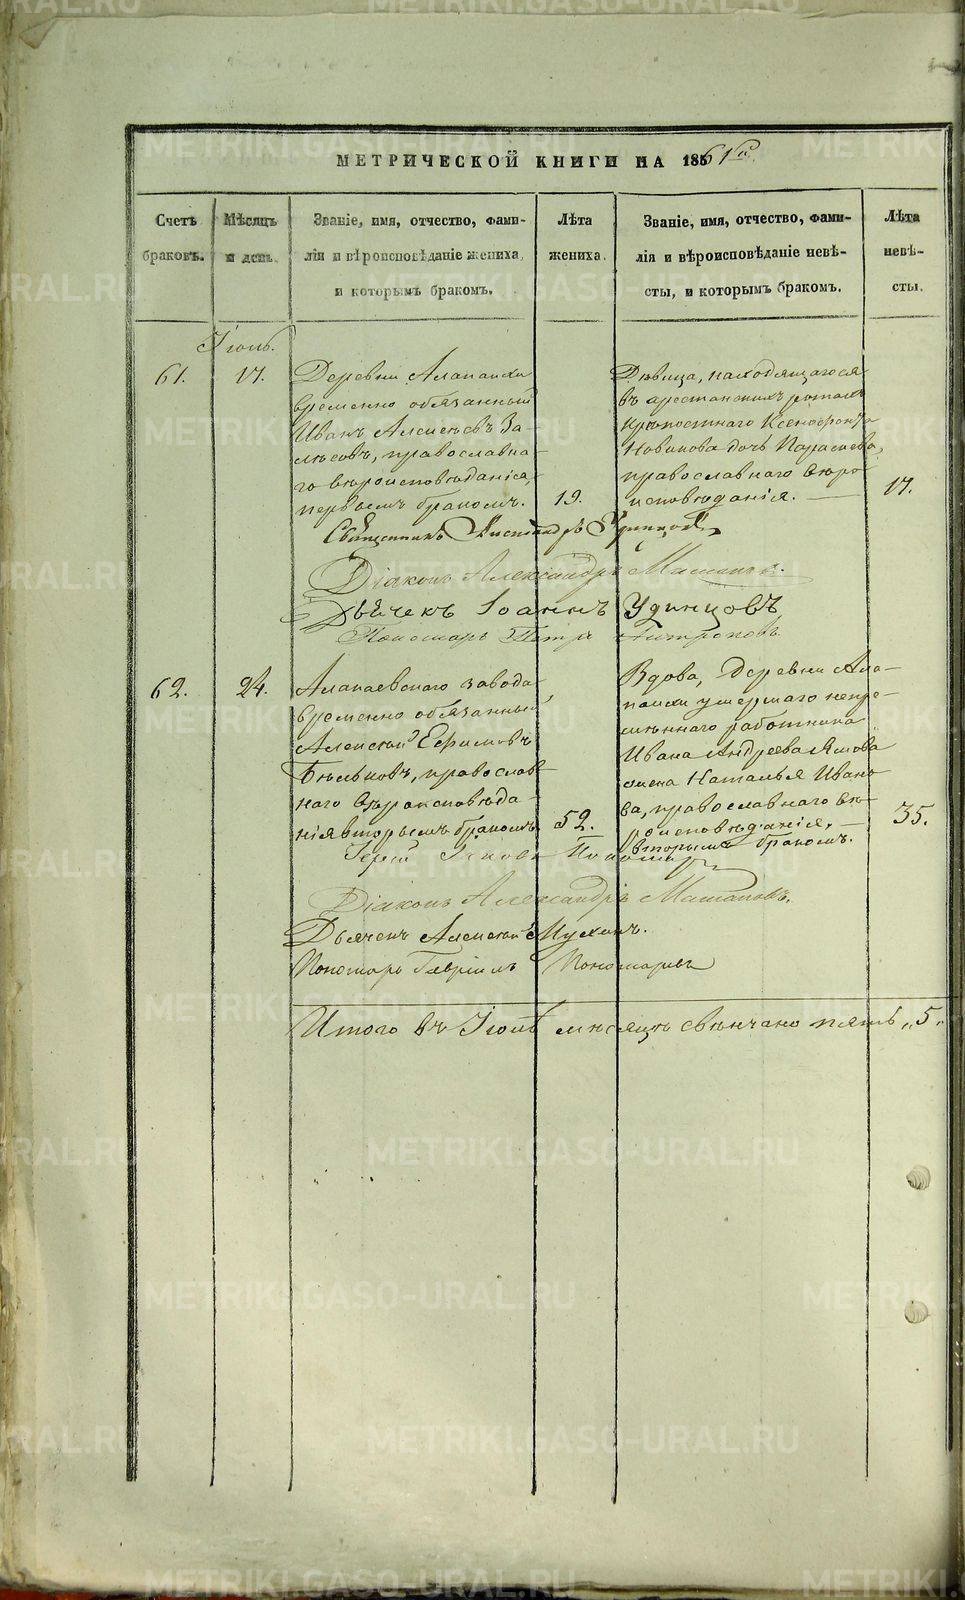 МЕТРИЧЕСКОЙ КНИГИ НА 1861й
Счетъ
браковъ.
Мѣсяцъ
и день.
Званіе, имя, отчество, фами-
лія и вѣроисповѣданіе жениха,
и которымъ бракомъ.
Лѣта
жениха.
Званіе, имя, отчество, фами-
лія и вѣроисповѣданіе невѣ-
сты, и которымъ бракомъ.
Лѣта
невѣ-
сты.
Іюль.
61.
17.
Деревни Алапаихи
временно обязанный
Иванъ Алексѣевъ За
лѣсовъ, православна-
го вѣроисповѣданія,
первымъ бракомъ.
19.
Дѣвица, находящагося
въ арестанскихъ ротахъ
крѣпостнаго Ксенофонта
Новикова дочь Параскева,
православнаго вѣро-
исповѣданія.
17.
Священникъ
Діаконъ Александръ
Дьячекъ Іоаннъ Удинцовъ
Пономарь Петръ
62.
24.
Алапаевскаго завода
временно обязанный
Алексѣй Ефимовъ
Бѣльковъ, православ-
наго вѣроисповѣда-
нія вторымъ бракомъ
52.
Вдова, деревни Ала-
паихи умершаго непре-
мѣннаго работника
Ивана Андреева
жена Наталья Ивано
ва, православнаго вѣ-
роисповѣданія,
вторымъ бракомъ.
35.
Іерей
Діаконъ Александръ
Дьячекъ Алексѣй Мухинъ.
Пономарь Гавріилъ Пономаревъ
Итого въ Іюлѣ мѣсяцѣ свѣнчано пять „5„
METRIKI.GASO-URAL.RU